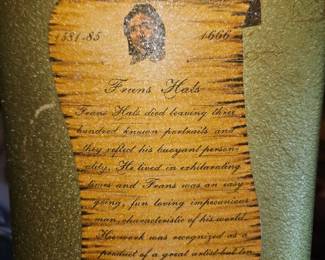 1581-85 1666
Frans Hals
Frans Hals died leaving three
hundred known portraits and
they reflect his buoyant person-
ality. He lived in exhilarating
times and Frans was an easy
going, fun loving impecunious
man, characteristic of his world.
His work was recognized as a
product of a great artist but